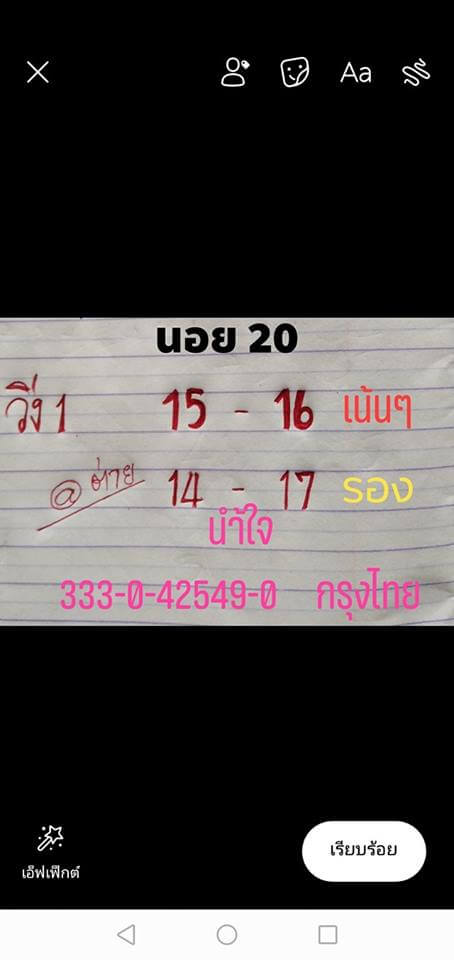 Aa
นอย 20
วิ่ง 1 15 - 16 เน้นๆ
@ ต่าย 14 - 17 รอง
น้ำใจ
333-0-42549-0 กรุงไทย
เอ็ฟเฟ็กต์
เรียบร้อย